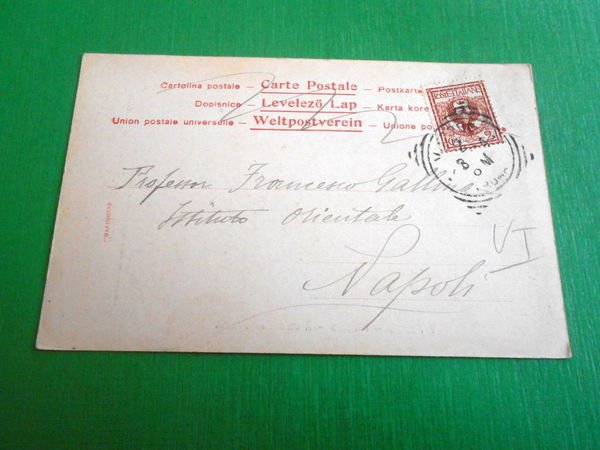 Cartolina postale — Carte Postale — Postkarte
Dopisnice — Levelező Lap — Karta kore
Union postale universelle — Weltpostverein — Unione po
Professor Francesco Gallina
Istituto Orientale
Napoli
VI